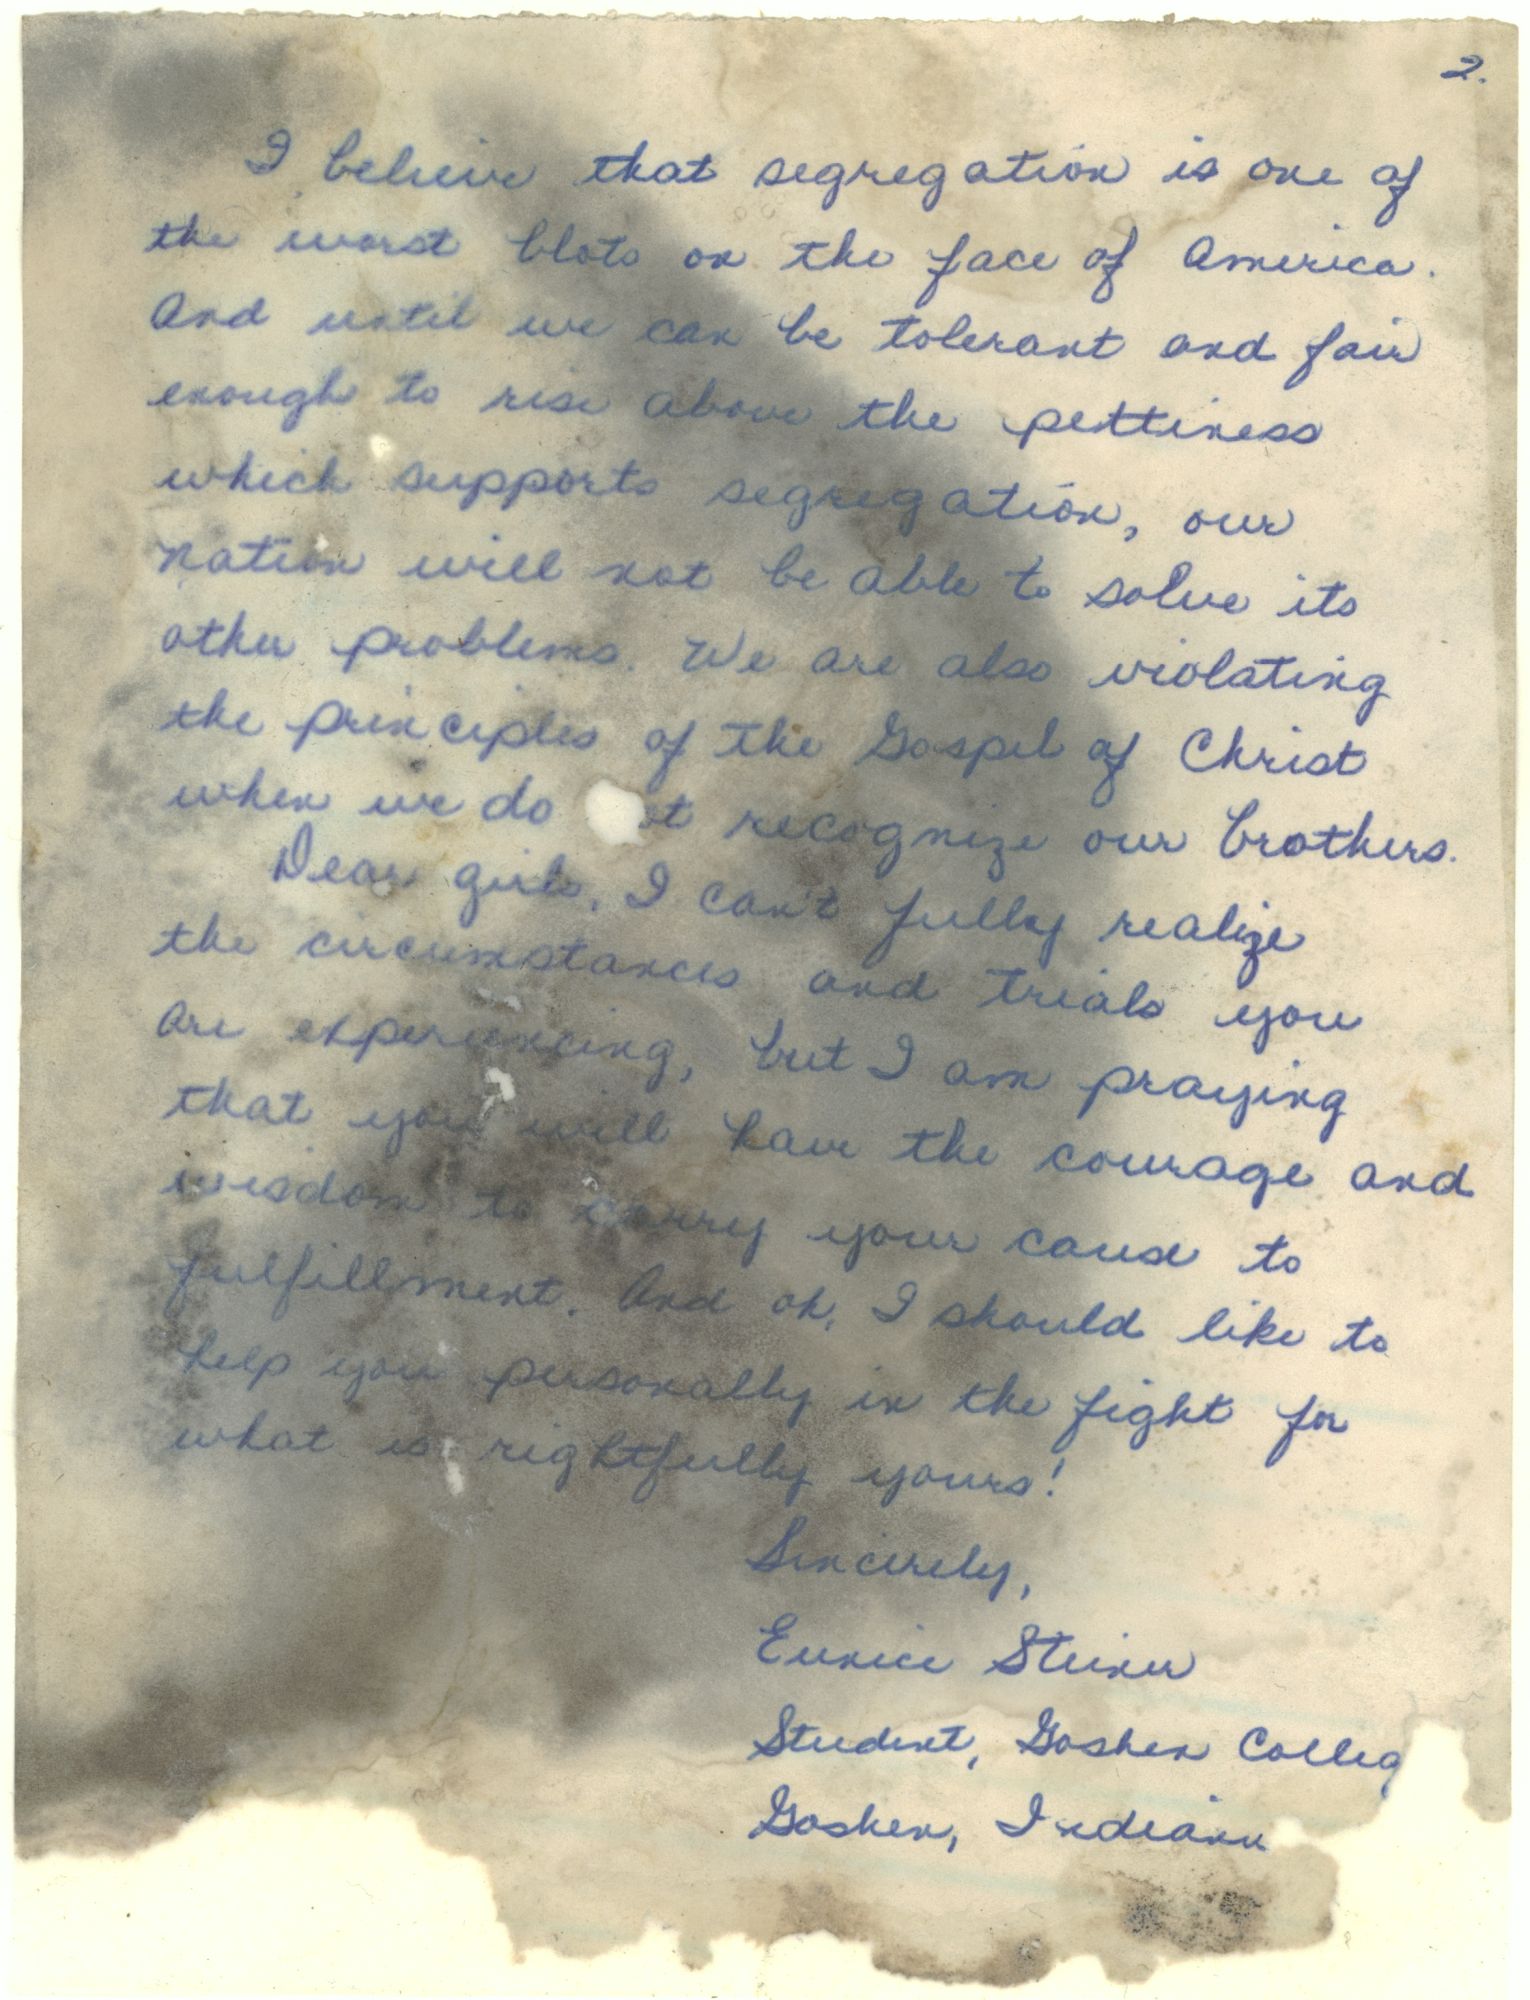 2.
I believe that segregation is one of
the worst blots on the face of America.
And until we can be tolerant and fair
enough to rise above the pettiness
which supports segregation, our
nation will not be able to solve its
other problems. We are also violating
the principles of the Gospel of Christ
when we do ot recognize our brothers.
Dear girls, I can't fully realize
the circumstances and trials you
are experiencing, but I am praying
that you will have the courage and
wisdom to carry your cause to
fulfillment. And oh, I should like to
help you personally in the fight for
what is rightfully yours!
Sincerely,
Eunice Steiner
Student, Goshen Colleg
Goshen, Indiana